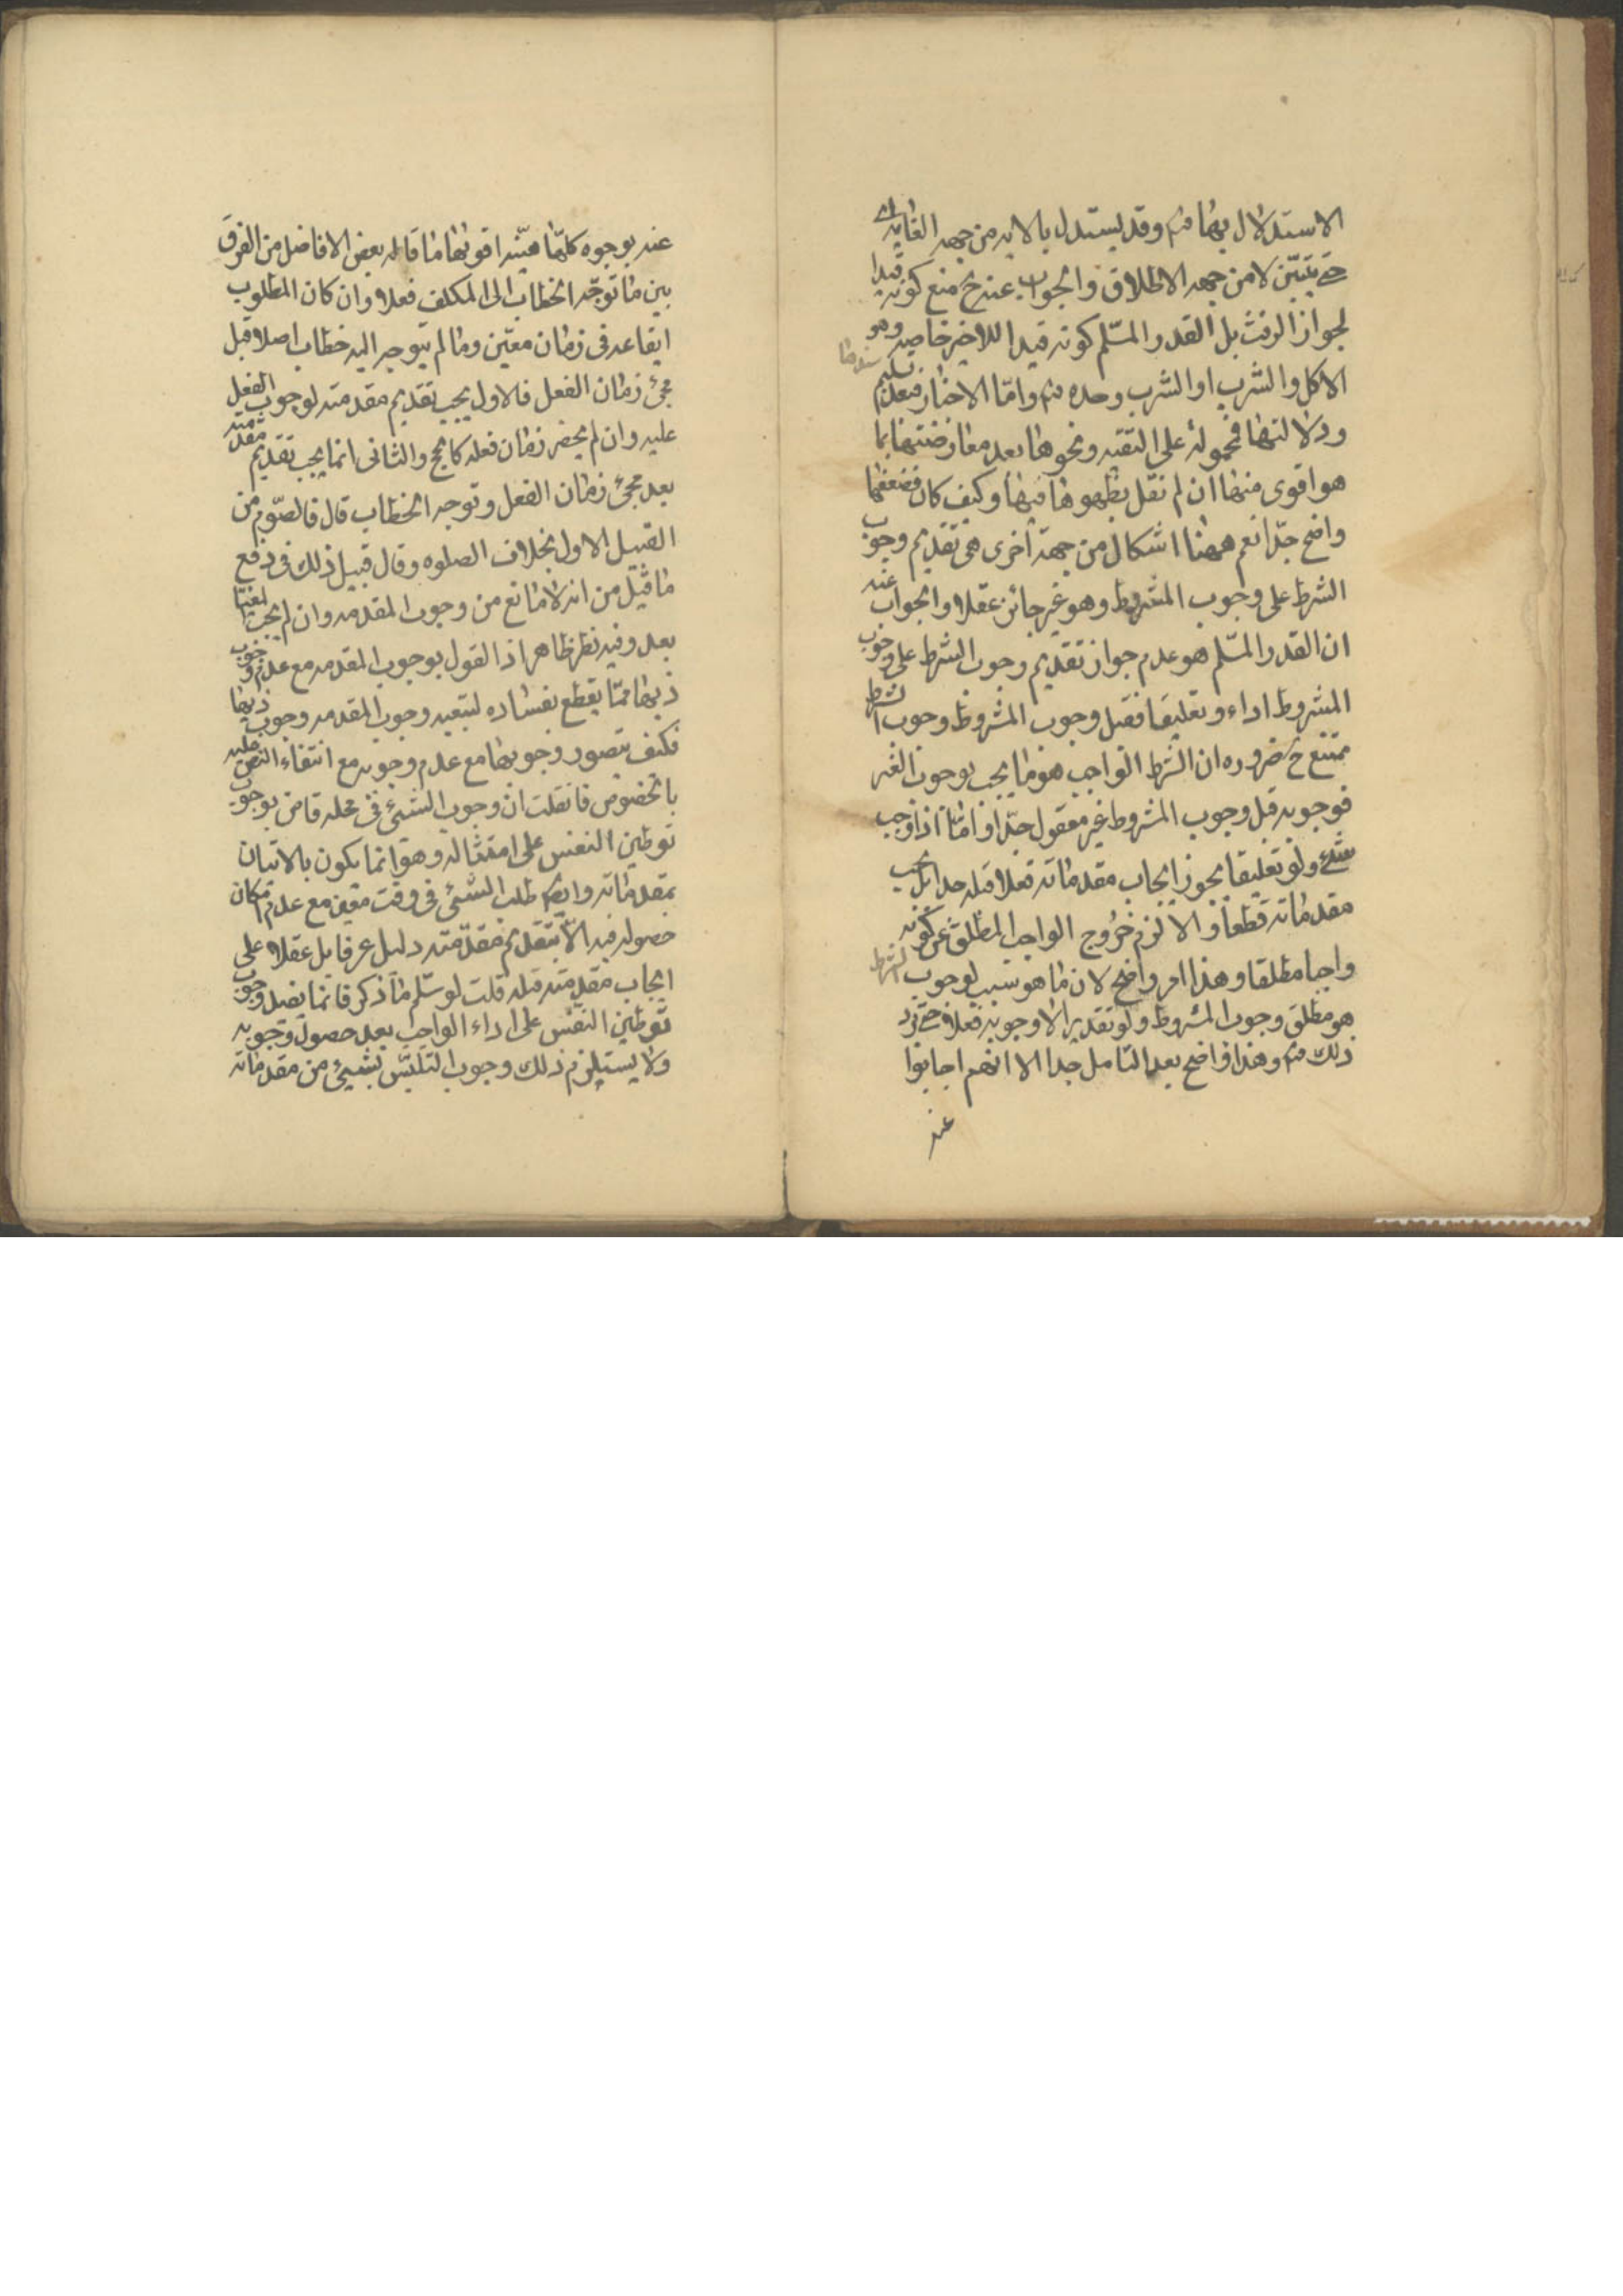 الاستدلال بهما فتم وقد يستدل بالايه من جهه الغايه اى
حتى يتبيّن لا من جهه الاطلاق والجواب عنه ح منع كونه قيدا
لجواز الرفث بل القدر المسلم كونه قيدا للاخير خاصه وهو
الاكل والشرب او الشرب وحده فتم وامّا الاخبار فبعد تسليم سندها
ودلالتها فمحموله على التقيه ونحوها بعد معارضتها بما
هو اقوى منها ان لم نقل بظهورها فيها وكيف كان فضعفها
واضح جدّا نعم ههنا اشكال من جهة اخرى هى تقديم وجوب
الشرط على وجوب المشروط وهو غير جائز عقلا والجواب عنه
ان القدر المسلم هو عدم جواز تقديم وجوب الشرط على وجوب
المشروط اداء وتعليقا فقبل وجوب المشروط وجوب الشرط
ممتنع ح ضروره ان الشرط الواجب هو ما يجب بوجوب الغير
فوجوبه قبل وجوب المشروط غير معقول جدّا وامّا اذا وجب
شئ ولو تعليقا يجوز ايجاب مقدماته فعلا قبله جدا بل يجب
مقدماته قطعا والا لزم خروج الواجب المطلق عن كونه
واجبا مطلقا وهذا امر واضح لان ما هو سبب لوجوب الشرط
هو مطلق وجوب المشروط ولو تقديرا لا وجوبه فعلا حتى يرد
ذلك فتم وهذا واضح بعد التامل جدا الا انهم اجابوا
عنه
عنه بوجوه كلّها هيّنه اقوىها ما قاله بعض الافاضل من الفرق
بين ما توجّه الخطاب الى المكلف فعلا وان كان المطلوب
ايقاعه فى زمان معيّن وما لم يتوجه اليه خطاب اصلا قبل
مجئ زمان الفعل فالاول يجب تقديم مقدمته لوجوب الفعل
عليه وان لم يحضر زمان فعله كالحج والثانى انما يجب تقديم مقدمته
بعد مجئ زمان الفعل وتوجه الخطاب قال فالصوم من
القبيل الاول بخلاف الصلوه وقال قبيل ذلك فى دفع
ما قيل من انه لا مانع من وجوب المقدمه وان لم يجب الغايه
بعد وفيه نظر ظاهر اذ القول بوجوب المقدمه مع عدم وجوب
ذيها ممّا يقطع بفساده لتبعيه وجوب المقدمه وجوب ذيها
فكيف يتصور وجوبها مع عدم وجوبه مع انتفاء النص عليه
بالخصوص فان قلت ان وجوب الشئ فى محله قاض بوجوب
توطين النفس على امتثاله وهو انما يكون بالاتيان
بمقدماته وايضا طلب الشئ فى وقت معين مع عدم امكان
حصوله فيه الا بتقديم مقدّمته دليل عرفا بل عقلا على
ايجاب مقدمته قبله قلت لو سلّم ما ذكر فانما يفيد وجوب
توطين النفس على اداء الواجب بعد حصول وجوبه
ولا يستلزم ذلك وجوب التلبّس بشئ من مقدماته